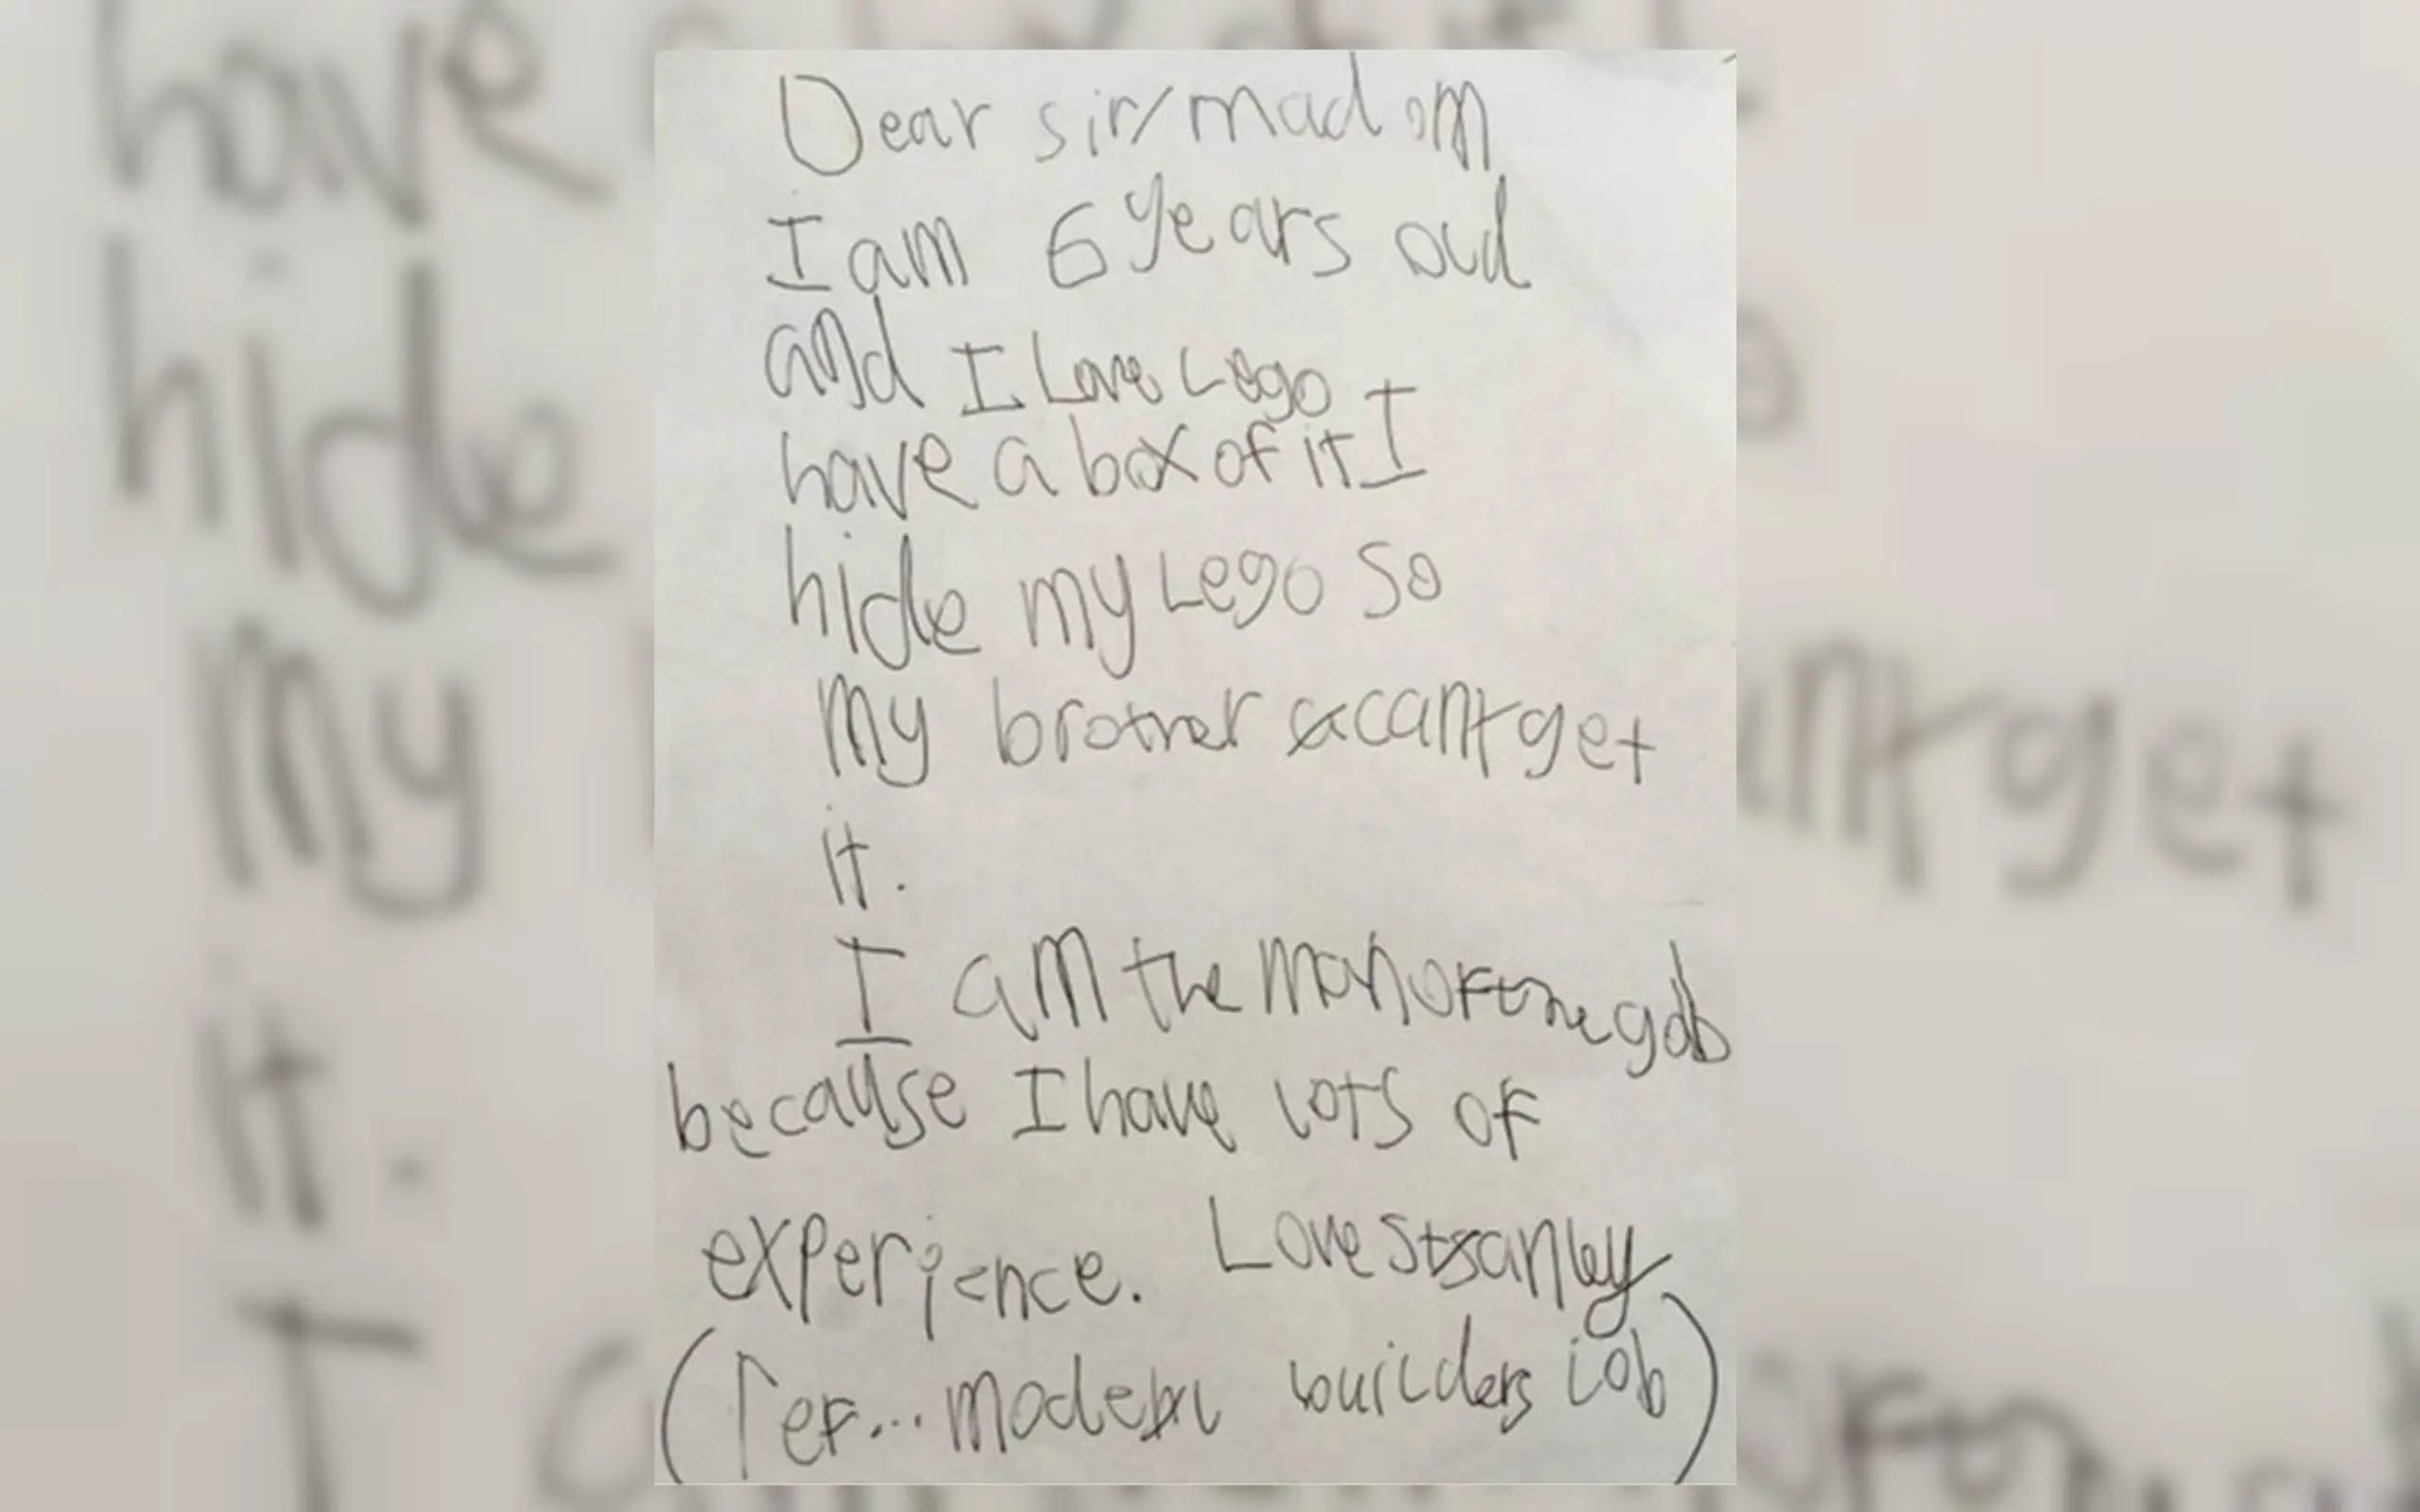 Dear sir/madam
I am 6 years old
and I Love Lego
have a box of it I
hide my Lego so
my brother cant get
it.
I am the man of the gob
because I have lots of
experience. Love Stanley
(ref... model builders job)